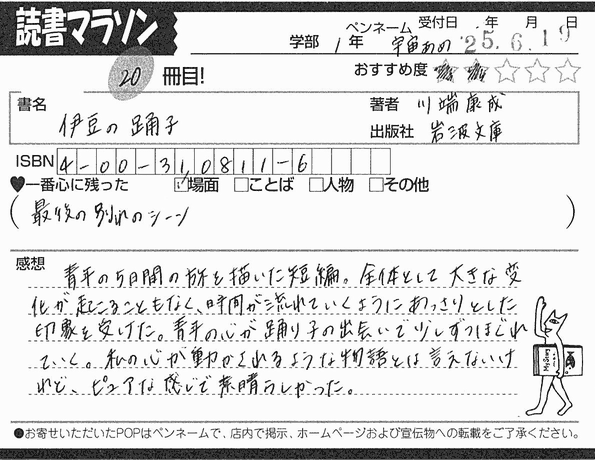 読書マラソン
学部 1年 ペンネーム 宇宙あめ 受付日 年 月 日
'25.6.19
20 冊目! おすすめ度
書名 伊豆の踊子
著者 川端康成
出版社 岩波文庫
ISBN 4-00-310811-6
♥一番心に残った ☑場面 □ことば □人物 □その他
(最後の別れのシーン)
感想
青年の5日間の旅を描いた短編。全体として大きな変
化が起こることもなく、時間が流れていくようにあっさりとした
印象を受けた。青年の心が踊り子の出会いで少しずつほぐれ
ていく。私の心が動かされるような物語とは言えないけ
れど、ピュアな感じで素晴らしかった。
●お寄せいただいたPOPはペンネームで、店内で掲示、ホームページおよび宣伝物への転載をご了承ください。